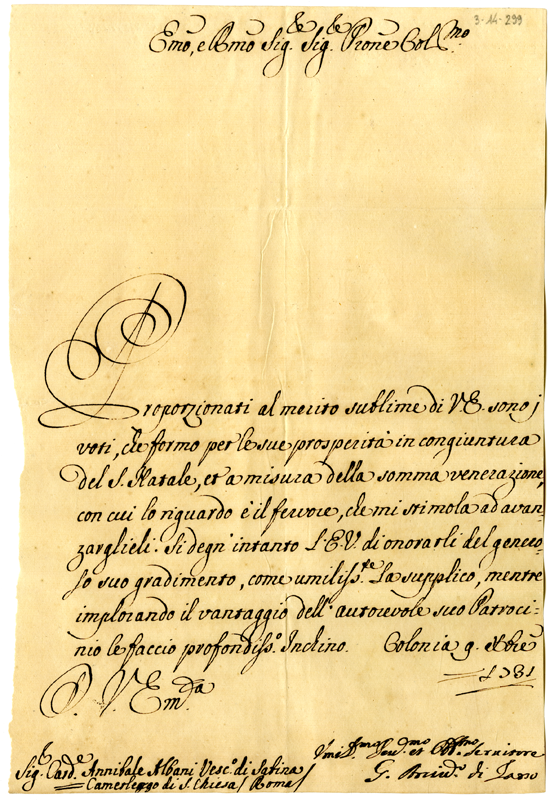 3-14-299
Emo, e Rmo Sig.re Sig.re Prone Coll.mo
Proporzionati al merito sublime di V.E. sono j
voti, che formo per le sue prosperità in congiuntura
del S. Natale, et a misura della somma venerazione,
con cui lo riguardo è il fervore, che mi stimola ad avan
zarglieli. Si degn' intanto l'E.V. di onorarli del genero
so suo gradimento, come umiliss.te La supplico, mentre
implorando il vantaggio dell' autorevole suo Patroci=
nio le faccio profondiss.o Inchino. Colonia 9. Xbre
1731
S. V. Em.da
Sig.r Card.e Annibale Albani Vesc.o di Sabina
Camerlengo di S. Chiesa / Roma /
Servitore
G. di